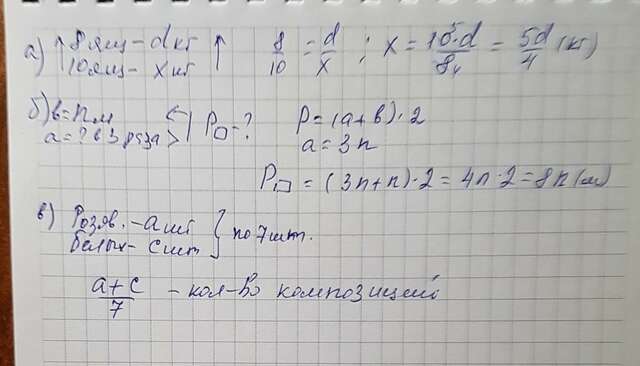 а) ↑ 8 ящ – d кг ↑ 8/10 = d/x ; x = 10·d/8 = 5d/4 (кг)
10 ящ – x кг
б) b = n м
a = ? в 3 раза > P▭ = ? P = (a + b) · 2
a = 3n
P▭ = (3n + n) · 2 = 4n · 2 = 8n (м)
в) Розов. – a шт
белых – c шт } по 7 шт.
a + c / 7 – кол-во композиций